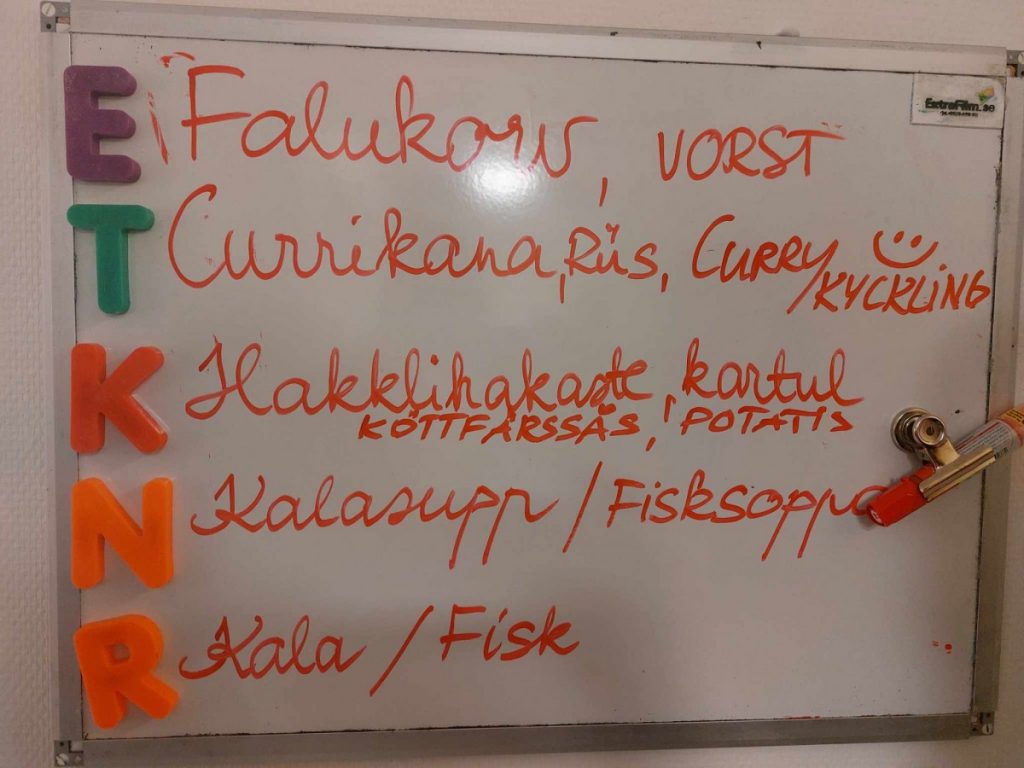 ExtraFilm.se
E Falukorv, VORST
T Currikana, Riis, CURRY/KYCKLING
K Hakklihakaste, kartul
KÖTTFÄRSSÅS, POTATIS
N Kalasupp / Fisksoppa
R Kala / Fisk